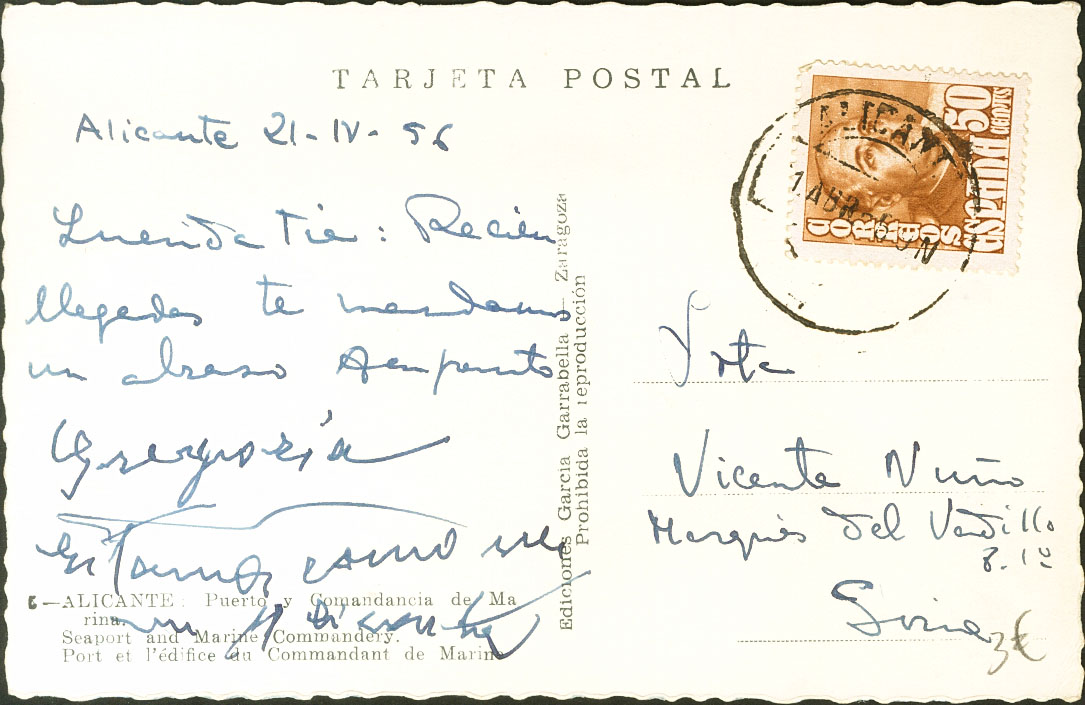 TARJETA POSTAL
Alicante 21-IV-56
Querida Tía: Recien
llegadas te mandamos
un abraso
Gregoria
Estamos como
6—ALICANTE: Puerto y Comandancia de Ma
rina.
Seaport and Marine Commandery.
Port et l'édifice du Commandant de Marine
Ediciones García Garrabella — Zaragoza
Prohibida la reproducción
50
CENTIMOS
ESPAÑA
CORREOS
ALICANT
ABR
Srta
Vicenta Nuño
Marqués del Vadillo
8. 1º
Soria
3€